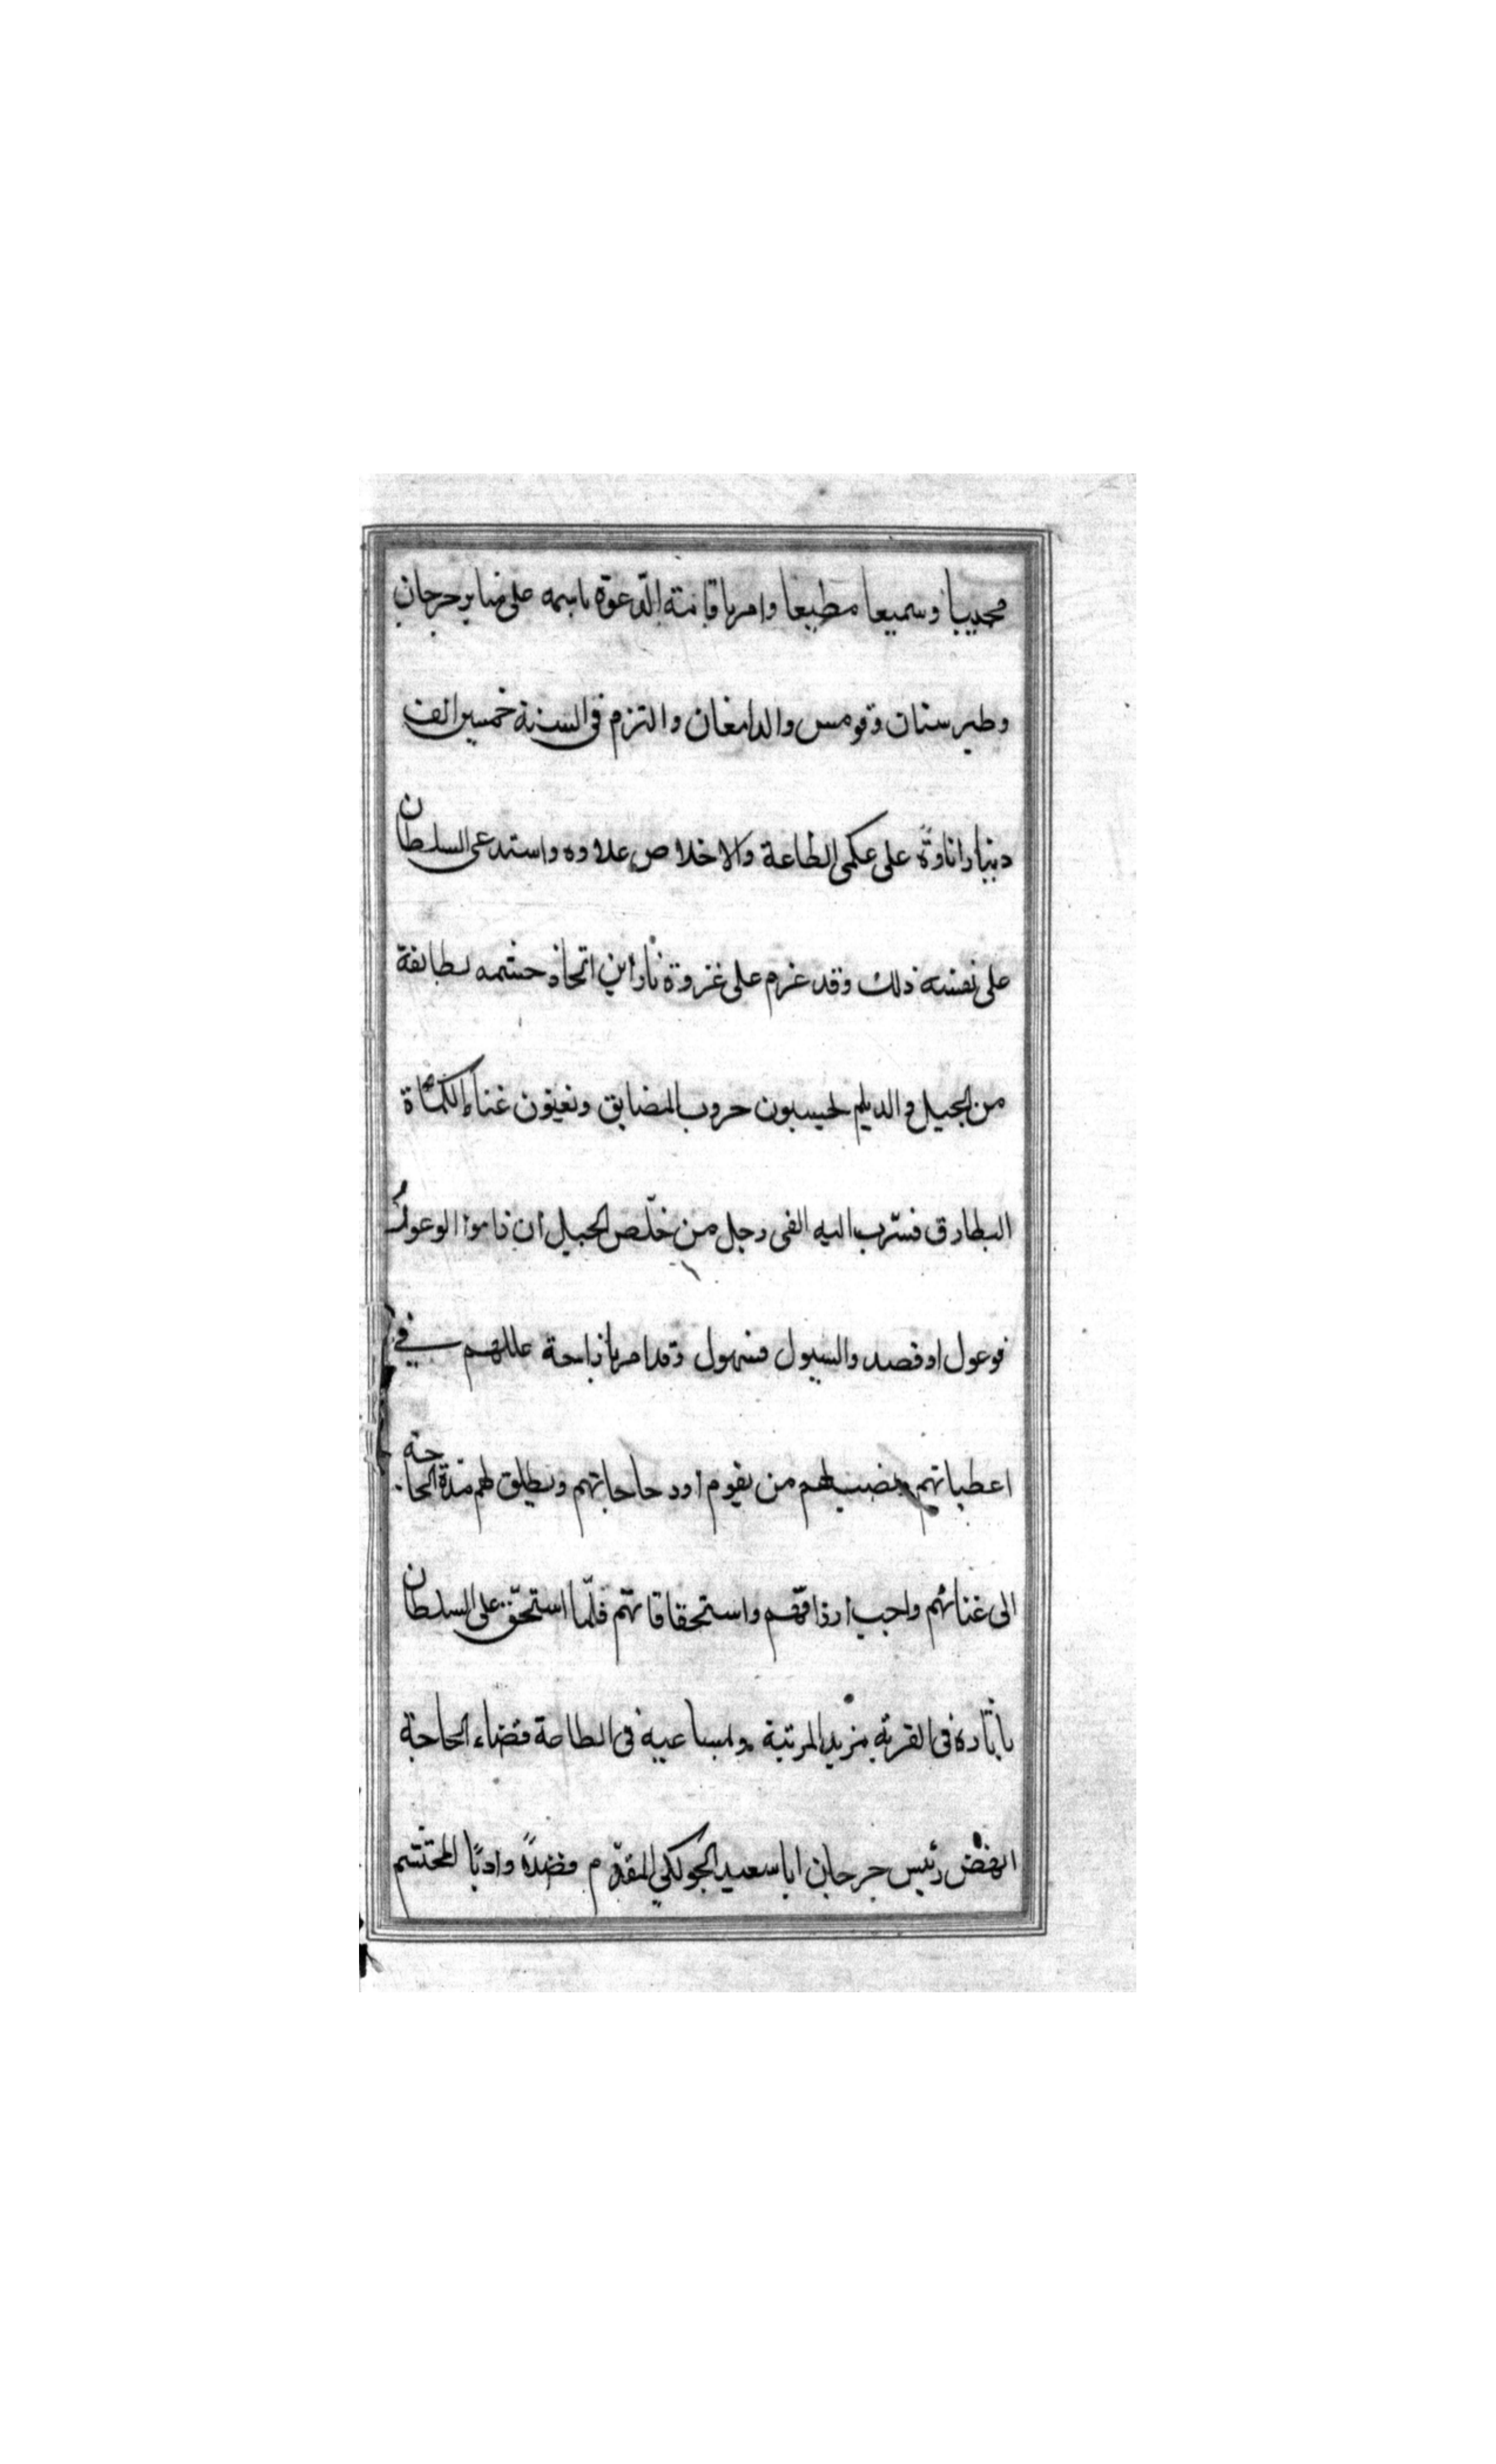 مجيبا وسميعا مطيعا وامر باقامته الدّعوة باسمه على منابر جرجان
وطبرستان وقومس والدامغان والتزم فى السنة خمسين الف
دينار اتاوةً على عكمى الطاعة والاخلاص علاوه واستدعى السلطان
على نفسه ذلك وقد عزم على غزوة ناراين اتحاد حشمه بطايفة
من الجيل والديلم يحسبون حروب المضايق ونغبون غناء الكماة
البطارق فسرّب اليه الفى رجل من خلّص الجيل ان راموا الوعول
فوعول او قصد والسيول فسيول وقد امر بازاحة عللهم في
اعطياتهم ونصب لهم من يقوم اود حاجاتهم ويطلق لهم مدة الحاجة
الى غنائهم واجب ارزاقهم واستحقاقاتهم فلمّا استحقّ على السلطان
باثاره فى القربة مزيد المرتبة وبمساعيه فى الطاعة قضاء الحاجة
انهض رئيس جرجان ابا سعيد الجولكي المقدّم فضلاً وادبًا المحتشم